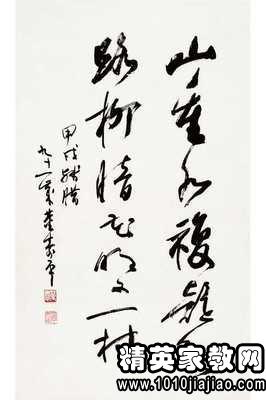 山重水複疑無
路柳暗花明又一村
甲戌残腊
九十一叟董寿平
精英家教网
www.1010jiajiao.com